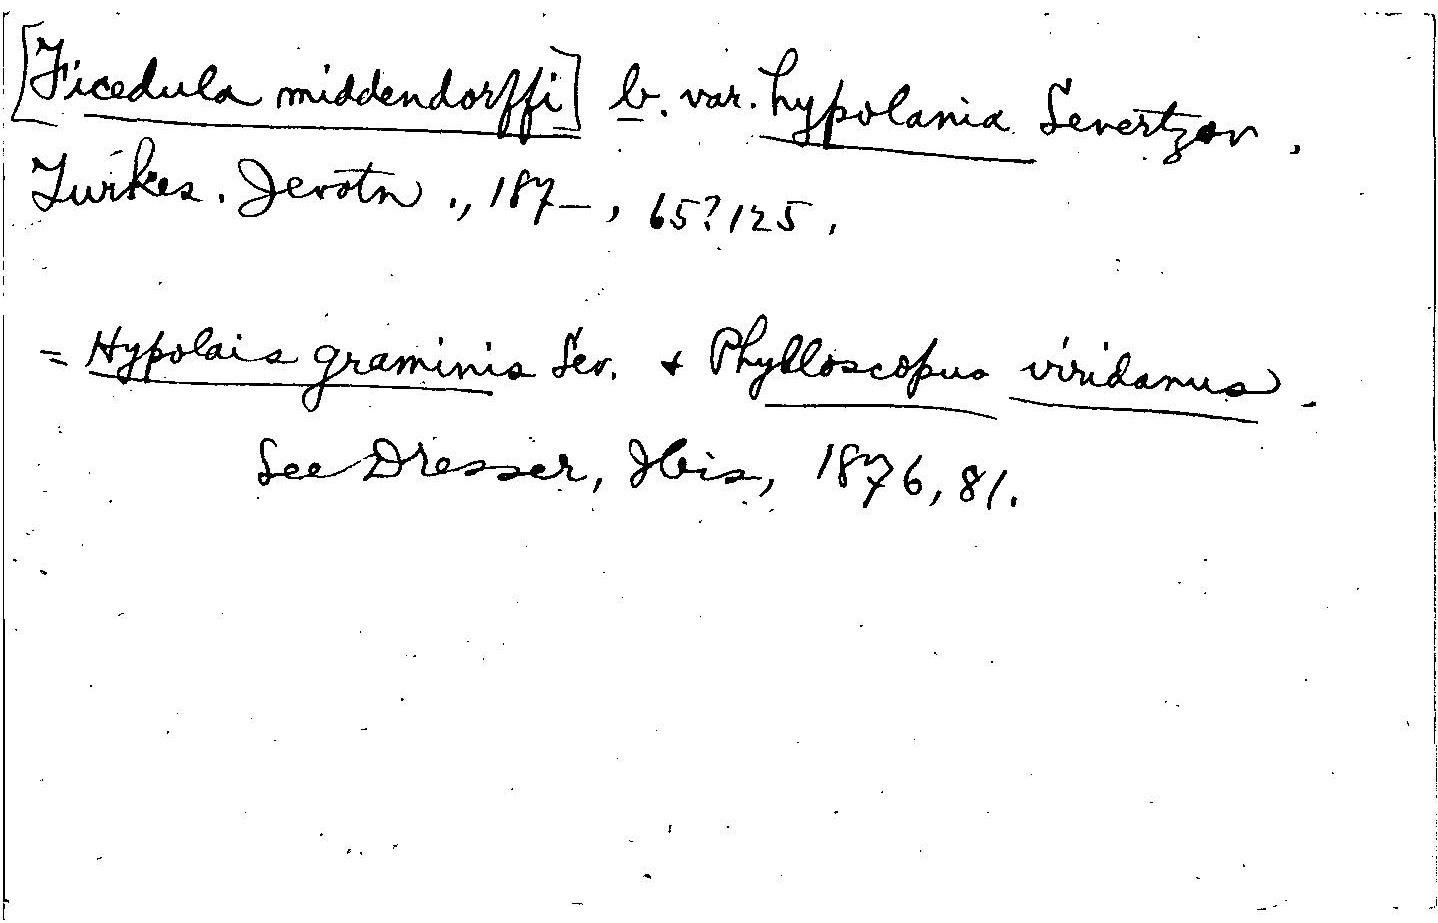 [Ficedula middendorffi] b. var. hypolania Severtzov,
Turkes. Jevotn., 187–, 65?125,
= Hypolais graminis Sev. + Phylloscopus viridanus.
See Dresser, Ibis, 1876, 81.